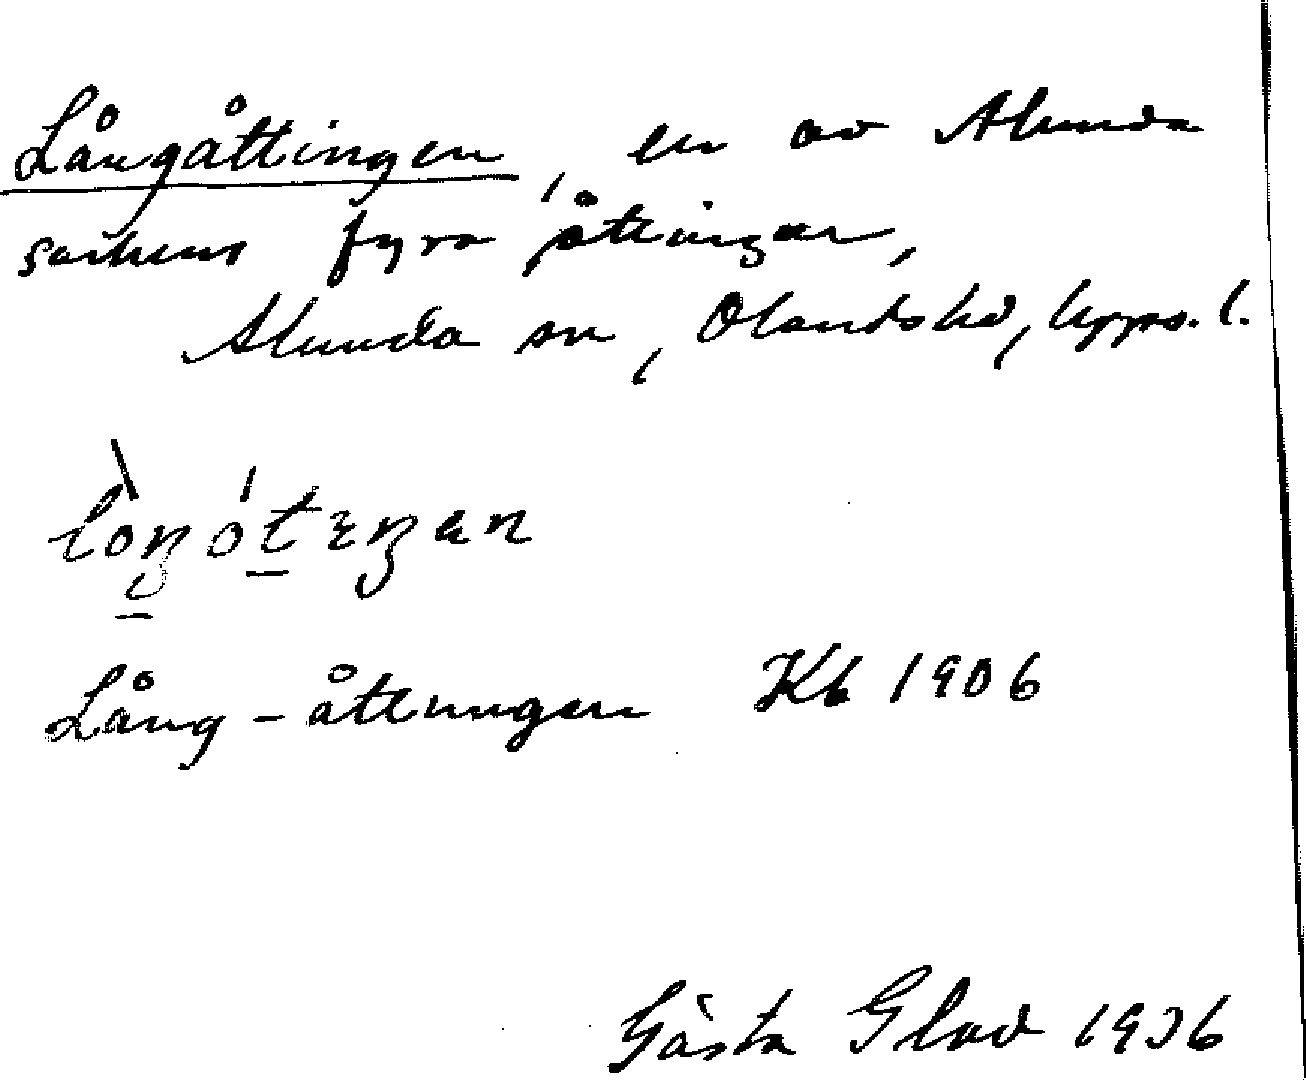 Långåttingen, en av Alunda
sockens fyra åttingar,
Alunda sn, Olands hd, Upps. l.
Lång-åttungen Kb 1906
Gösta Glad 1936